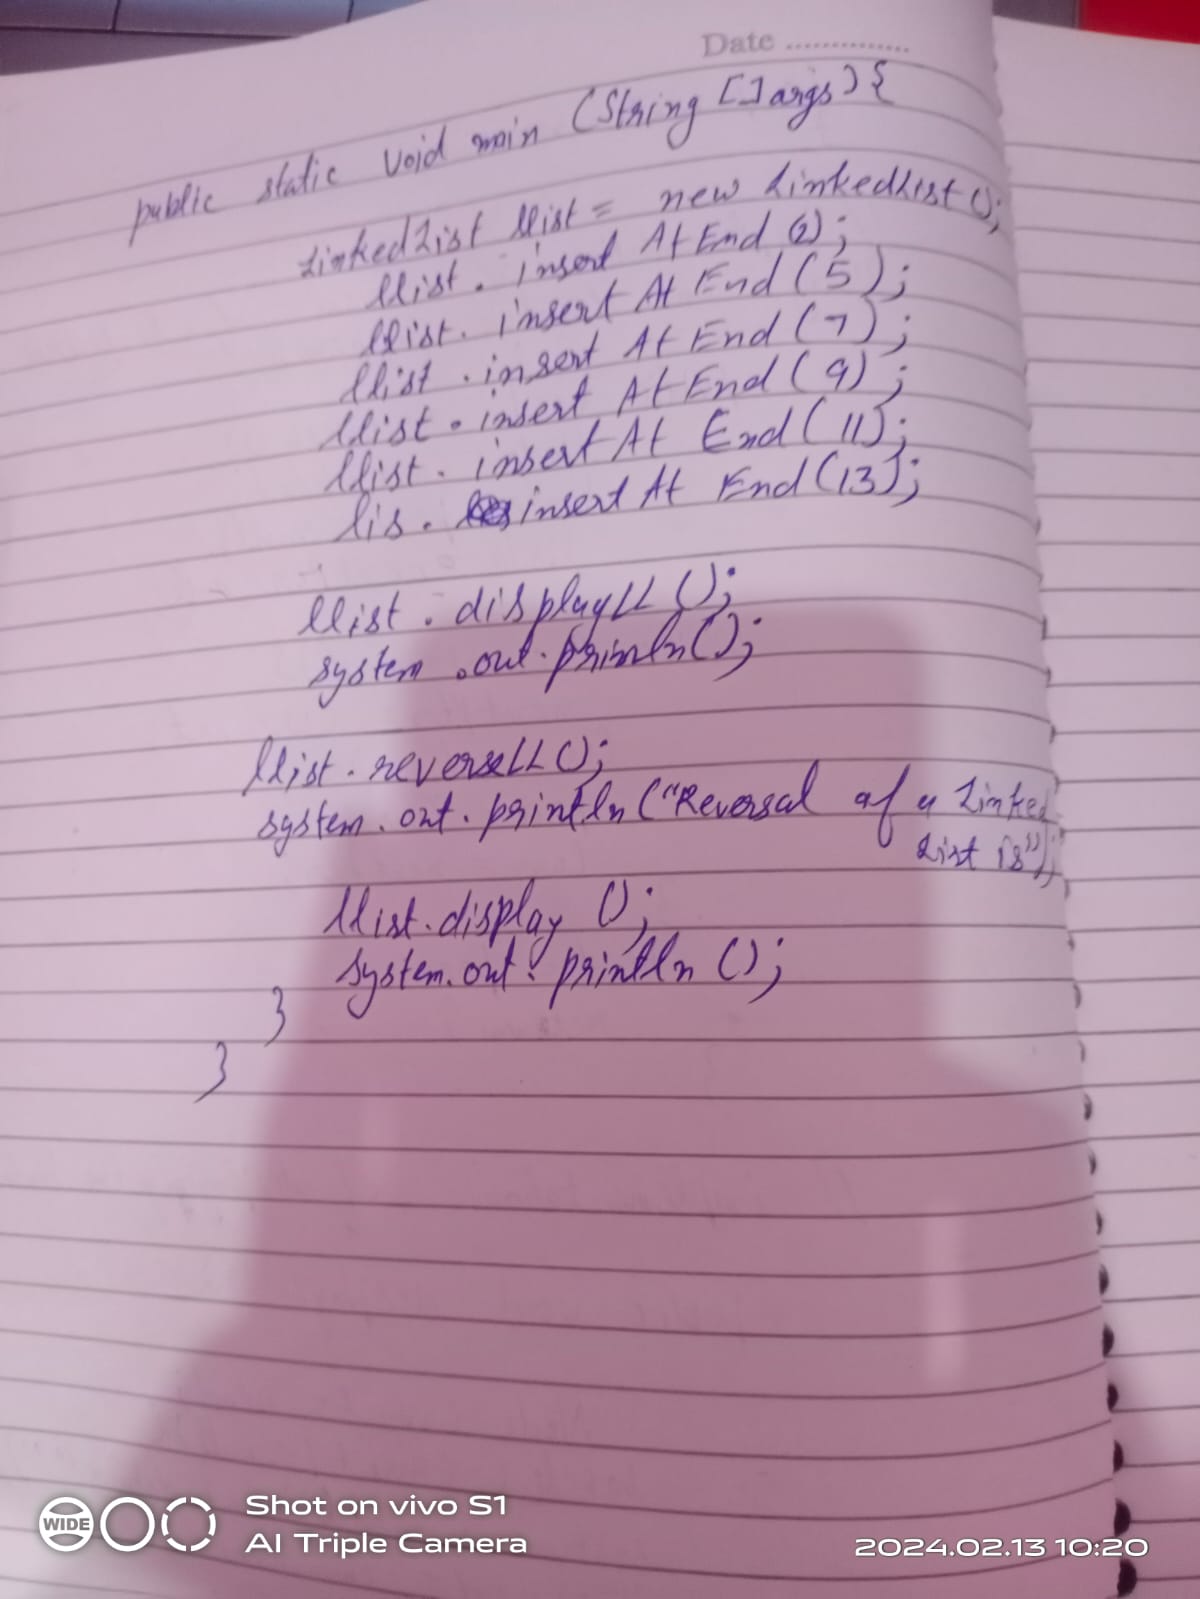 Date ..............
public static void main (String []args){
LinkedList llist = new LinkedList ();
llist . insert At End (2);
llist . insert At End (5);
llist . insert At End (7);
llist . insert At End (9);
llist . insert At End (11);
lis . insert At End (13);
llist . displayLL ();
system .out. println();
llist . reverseLL ();
system. out. println ("Reversal of a Linked
List is");
llist. display ();
system. out. println ();
}
}
WIDE
Shot on vivo S1
AI Triple Camera
2024.02.13 10:20